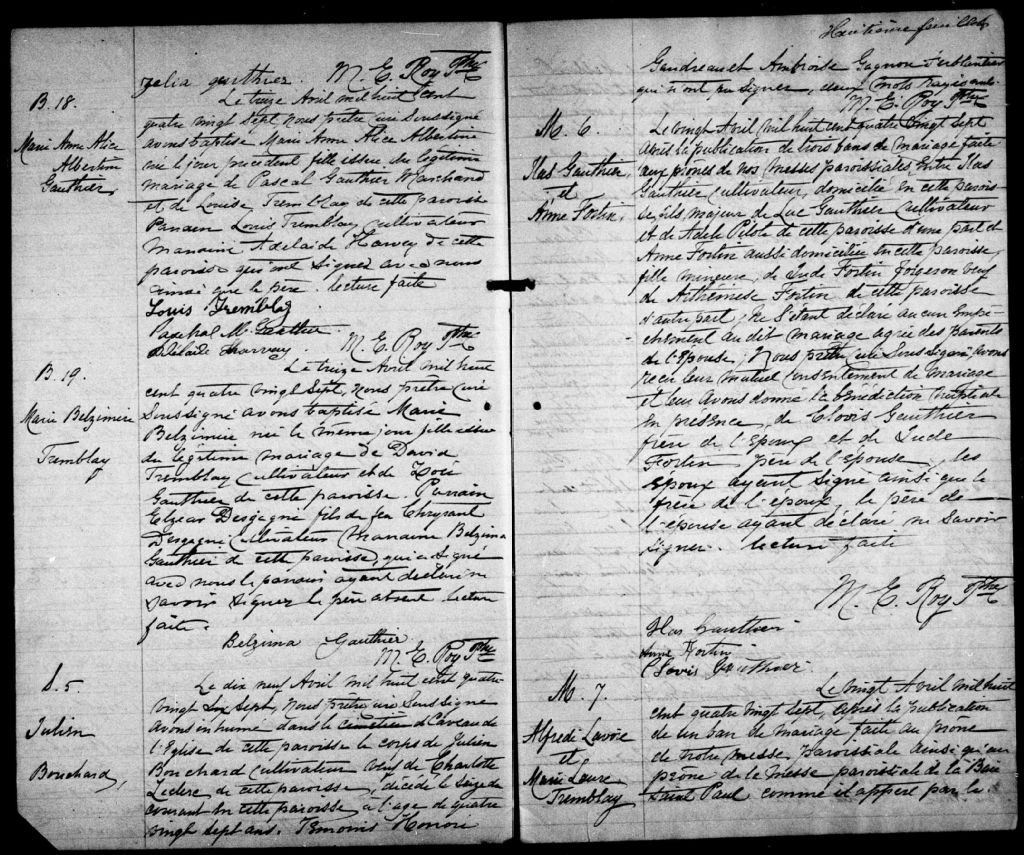 Zelia Gauthier. M. E. Roy Ptre
B. 18.
Marie Anne Alice
Albertine
Gauthier,
Le treize Avril mil huit cent
quatre vingt sept nous prêtre curé soussigné
avons baptisé Marie Anne Alice Albertine
née le jour précédent fille issue du légitime
mariage de Pascal Gauthier Marchand
et de Louise Tremblay de cette paroisse
Parrain Louis Tremblay, cultivateur
Marraine Adelaide Harvey de cette
paroisse qui ont signés avec nous
ainsi que le père. Lecture faite
Louis Tremblay
Paschal M. Gauthier
Adelaide Harvey. M. E. Roy Ptre
B. 19.
Marie Belzimire
Tremblay
Le treize Avril mil huit
cent quatre vingt sept, nous prêtre curé
soussigné avons baptisé Marie
Belzimire née le même jour fille issue
du légitime mariage de David
Tremblay cultivateur et de Zoé
Gauthier de cette paroisse. Parrain
Elzear Desgagné fils de feu Chrysant
Desgagné cultivateur Marraine Belzima
Gauthier de cette paroisse, qui a signé
avec nous le parrain ayant déclaré ne
savoir signer le père absent. Lecture
faite.
Belzima Gauthier
M. E. Roy Ptre
S. 5
Julien
Bouchard,
Le dix neuf Avril mil huit cent quatre
vingt sept, nous prêtre curé soussigné
avons inhumé dans le caveau de
l'Eglise de cette paroisse le corps de Julien
Bouchard cultivateur veuf de Charlotte
Leclerc de cette paroisse, décédé le seize du
courant en cette paroisse à l'age de quatre
vingt sept ans. Témoins Honoré
Huitième feuillet
Gaudreau et Ambroise Gagnon
qui n'ont pu signer, deux mots rayés nuls.
M. E. Roy Ptre
M. 6.
Ilas Gauthier,
et
Anne Fortin,
Le vingt Avril mil huit cent quatre vingt sept
après la publication de trois bans de mariage faite
aux prônes de nos messes paroissiales, entre Ilas
Gauthier cultivateur, domicilié en cette parois-
se fils, majeur de Luc Gauthier cultivateur
et de Adele Pilote de cette paroisse d'une part et
Anne Fortin aussi domiciliée en cette paroisse,
fille mineure, de Jude Fortin forgeron veuf
de Arthémise Fortin de cette paroisse
d'autre part, ne s'étant déclaré aucun empê-
chement au dit mariage agréé des parents
de l'Epouse, Nous prêtre curé soussigné avons
reçu leur mutuel consentement de mariage
et leur avons donné la bénédiction nuptiale
en présence, de Clovis Gauthier
frère de l'Epoux et de Jude
Fortin, père de l'épouse, les
époux ayant signé ainsi que le
frère de l'époux, le père de
l'épouse ayant déclaré ne savoir
signer. Lecture faite
M. E. Roy Ptre
Ilas Gauthier
Anne Fortin
Clovis Gauthier
M. 7
Alfred Lavoie
et
Marie Laure
Tremblay
Le vingt Avril mil huit
cent quatre vingt sept, après la publication
de un ban de mariage faite au prône
de notre messe, paroissiale ainsi qu'au
prône de la Messe paroissiale de la Baie
Saint Paul comme il appert par le